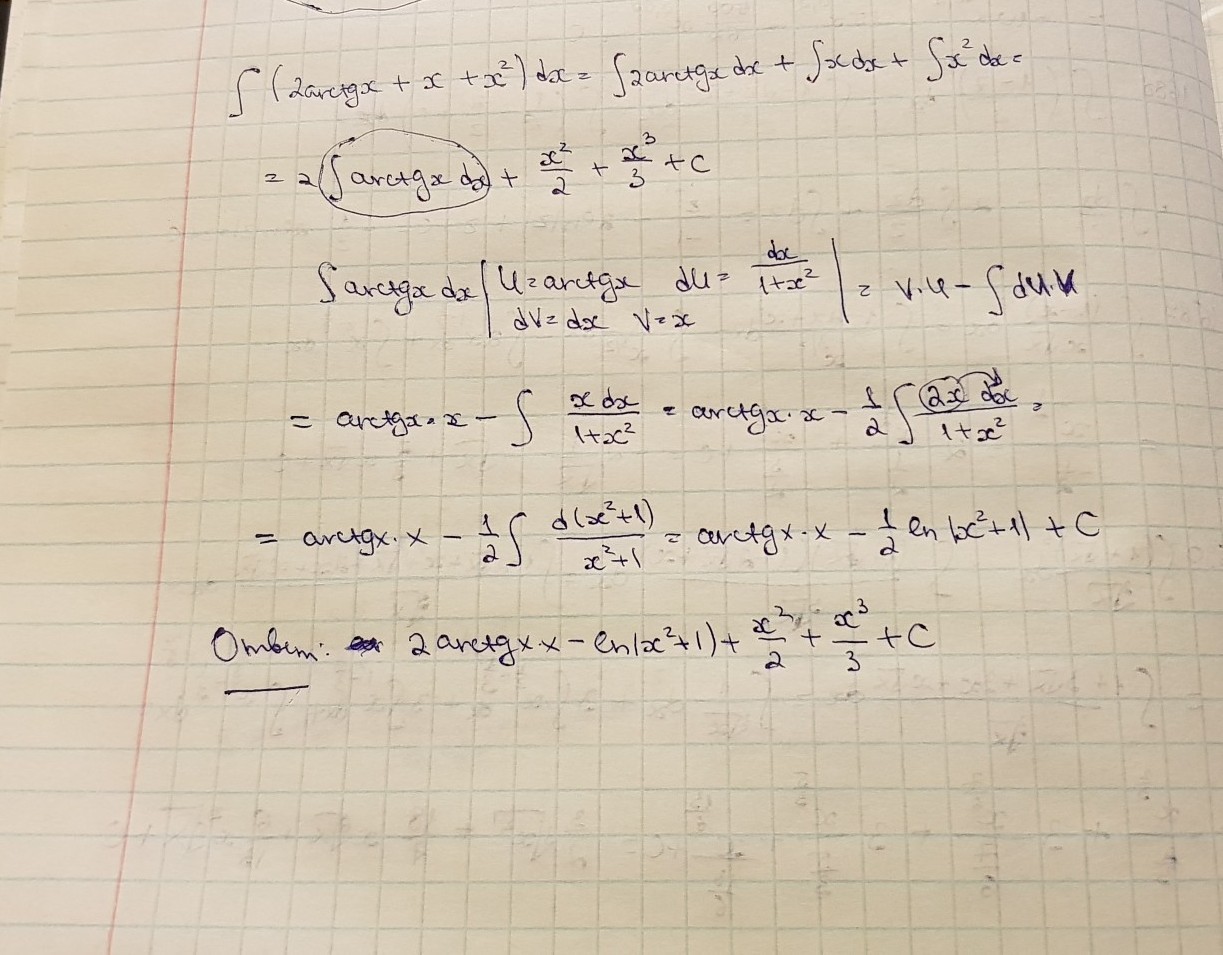 ∫ (2arctgx + x + x²) dx = ∫2arctgx dx + ∫x dx + ∫x² dx =
= 2 ∫ arctgx dx + x²/2 + x³/3 + C
∫ arctgx dx | U = arctgx dU = dx/(1+x²) | = V·U - ∫ dU·V
dV = dx V = x
= arctgx · x - ∫ x dx/(1+x²) = arctgx · x - 1/2 ∫ 2x dx/(1+x²) =
= arctgx · x - 1/2 ∫ d(x²+1)/(x²+1) = arctgx · x - 1/2 ln |x²+1| + C
Ответ: 2 arctgx · x - ln|x²+1| + x²/2 + x³/3 + C